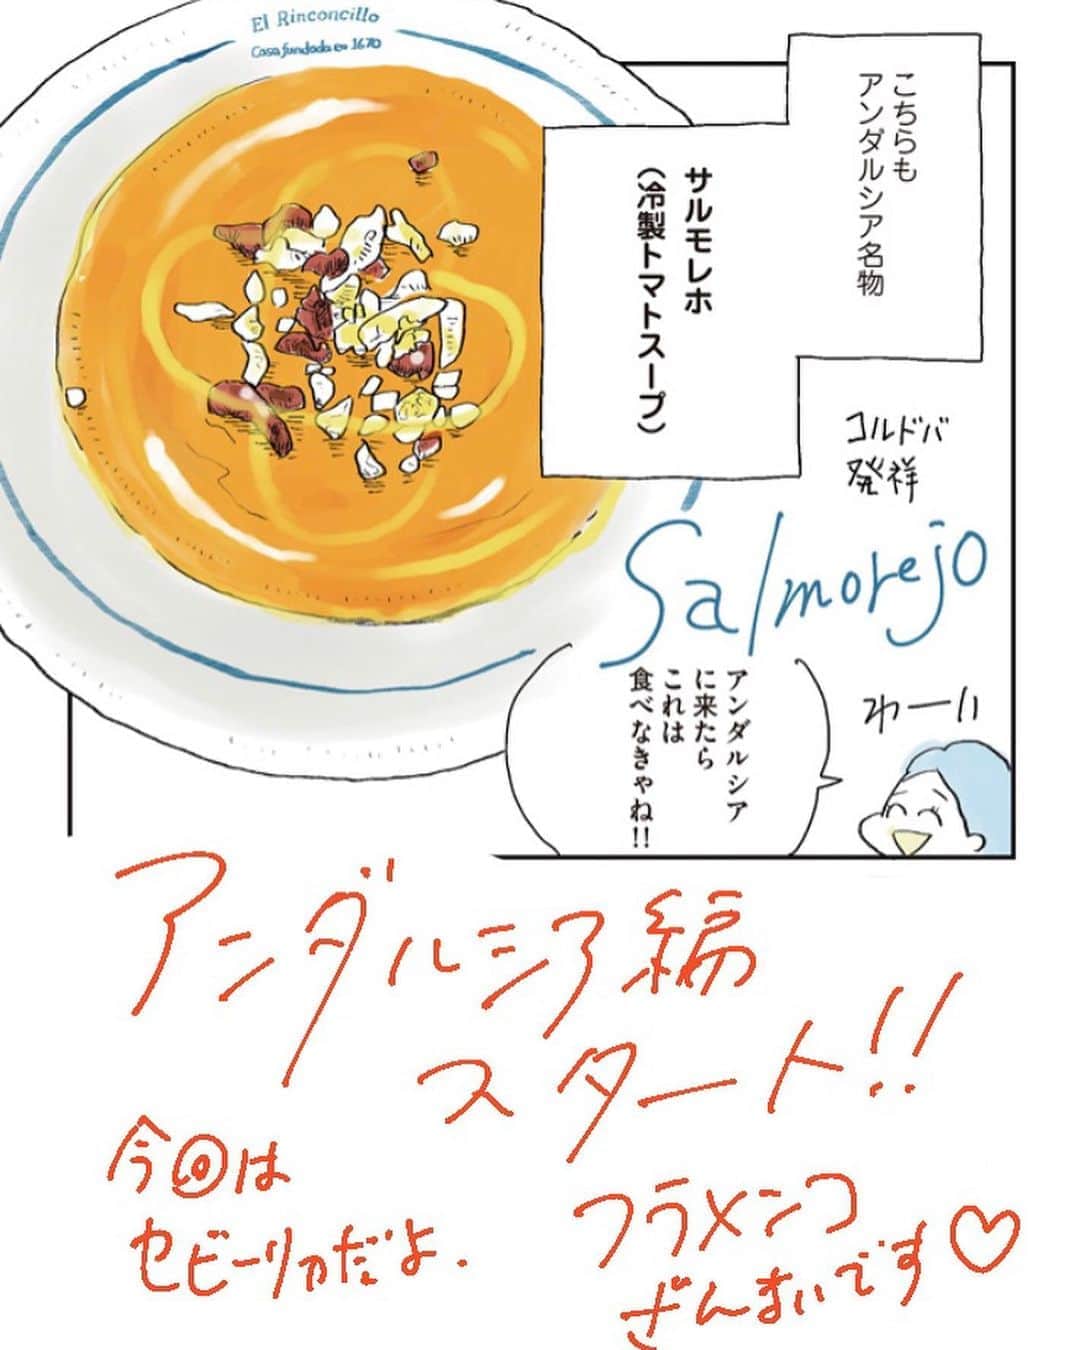 El Rinconcillo
Casa fundada en 1670
こちらも
アンダルシア名物
サルモレホ
（冷製トマトスープ）
コルドバ
発祥
Salmorejo
アンダルシア
に来たら
これは
食べなきゃね!!
わーい
アンダルシア編
スタート!!
今回は
セビーリャだよ.
フラメンコ
ざんまいです♡